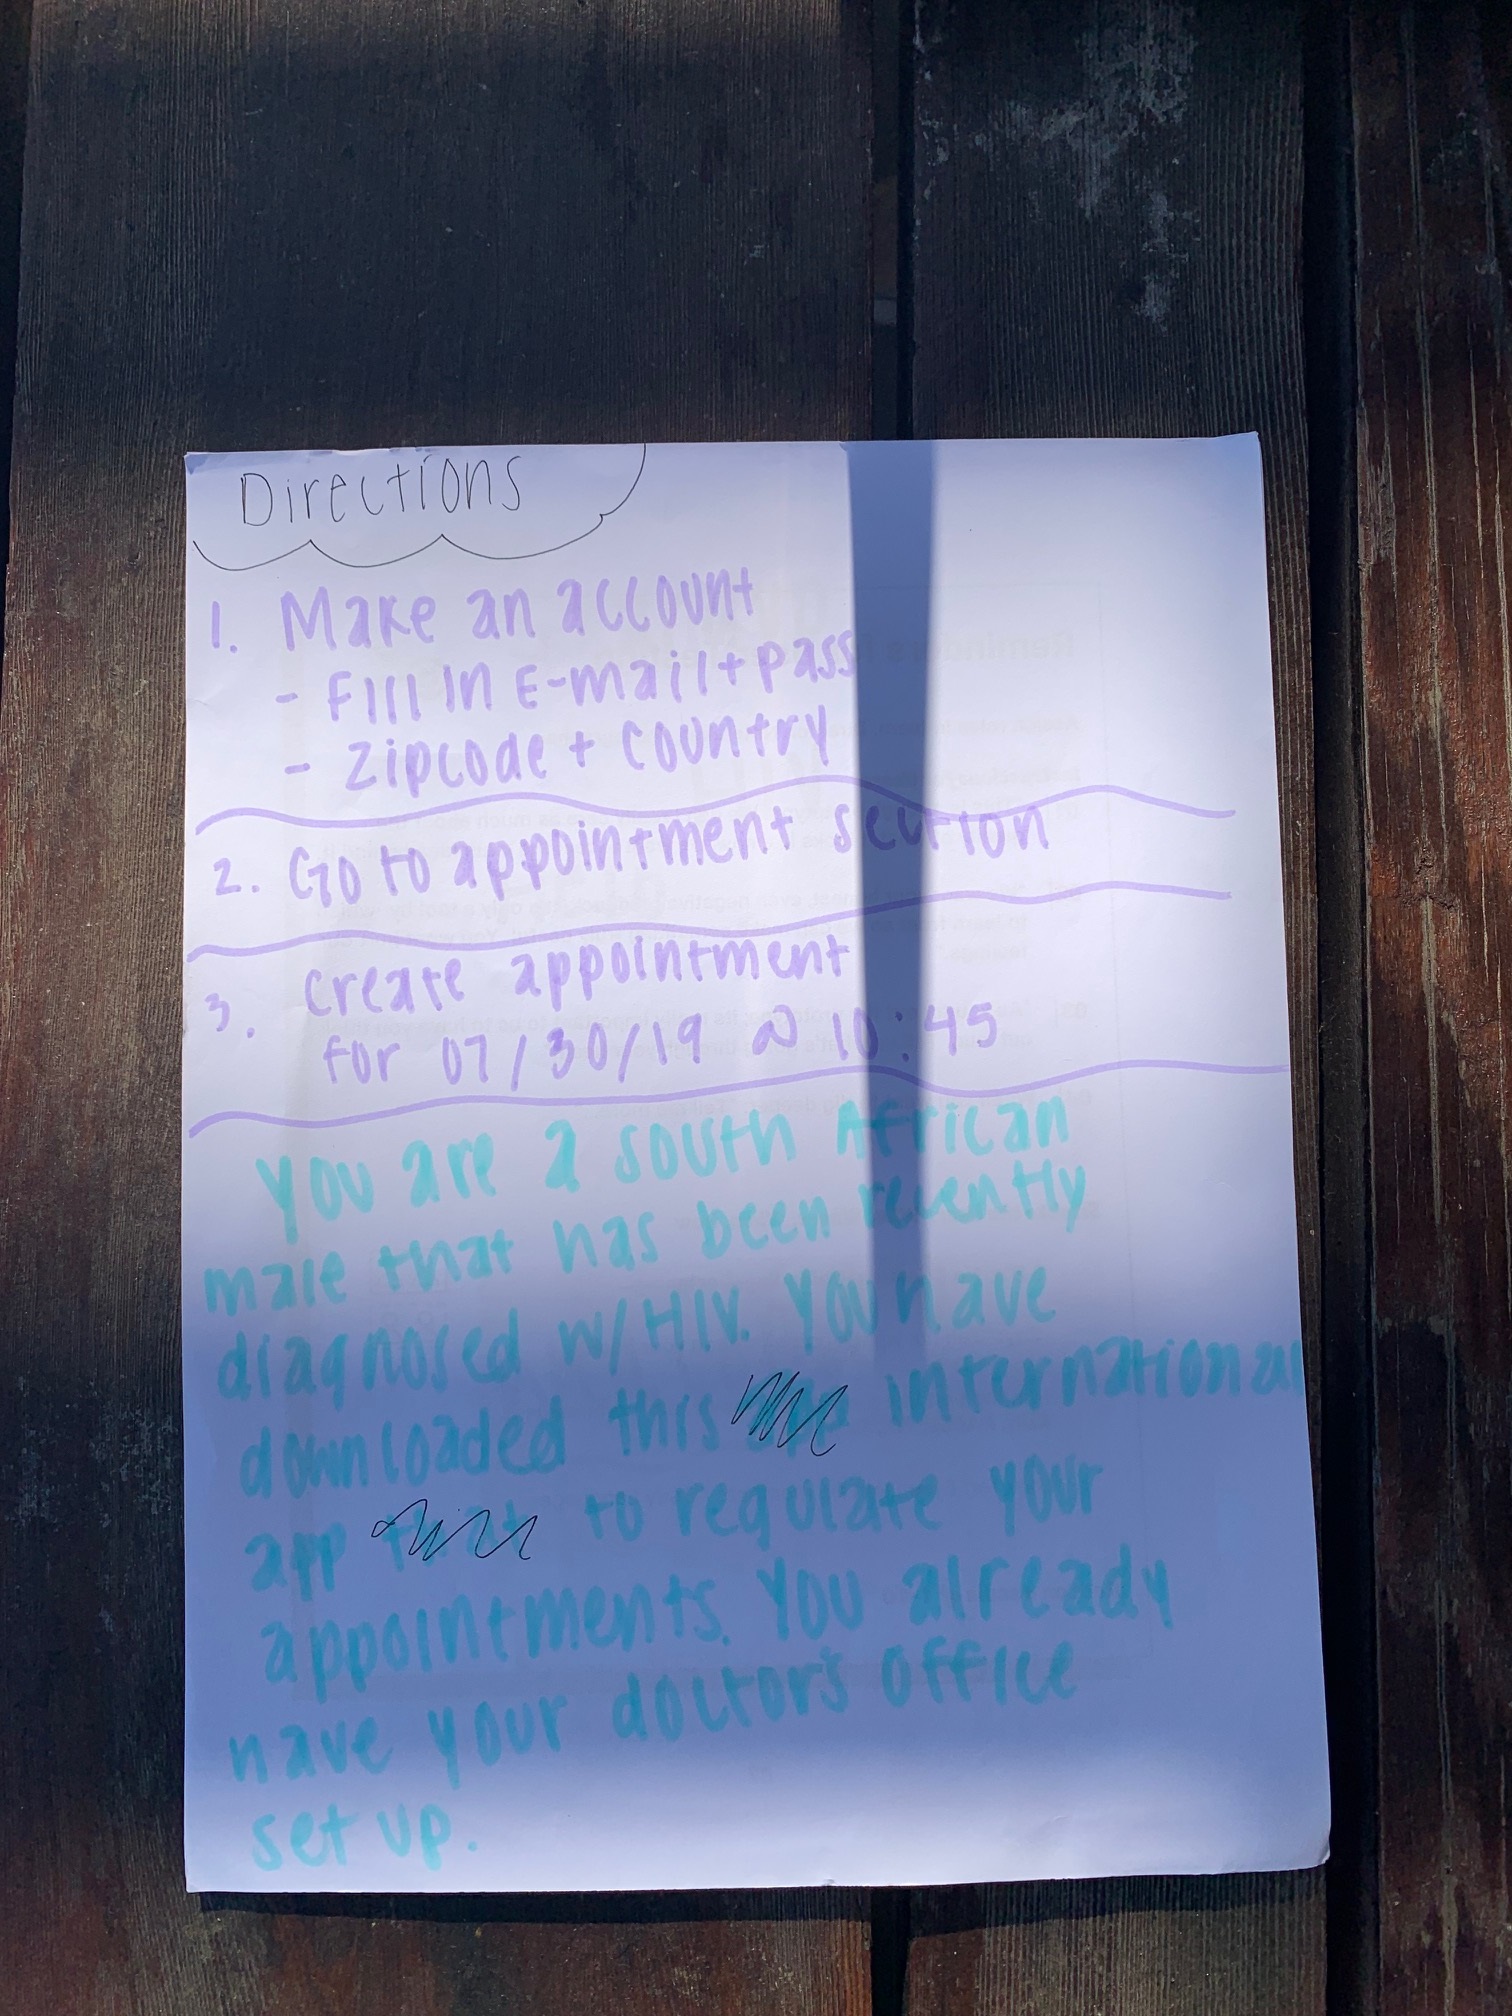 Directions
1. Make an account
- Fill in E-mail + pass
- Zipcode + Country
2. Go to appointment section
3. Create appointment
for 07/30/19 @ 10:45
You are a South African
male that has been recently
diagnosed w/ HIV. You have
downloaded this international
app to regulate your
appointments. You already
have your doctor's office
set up.